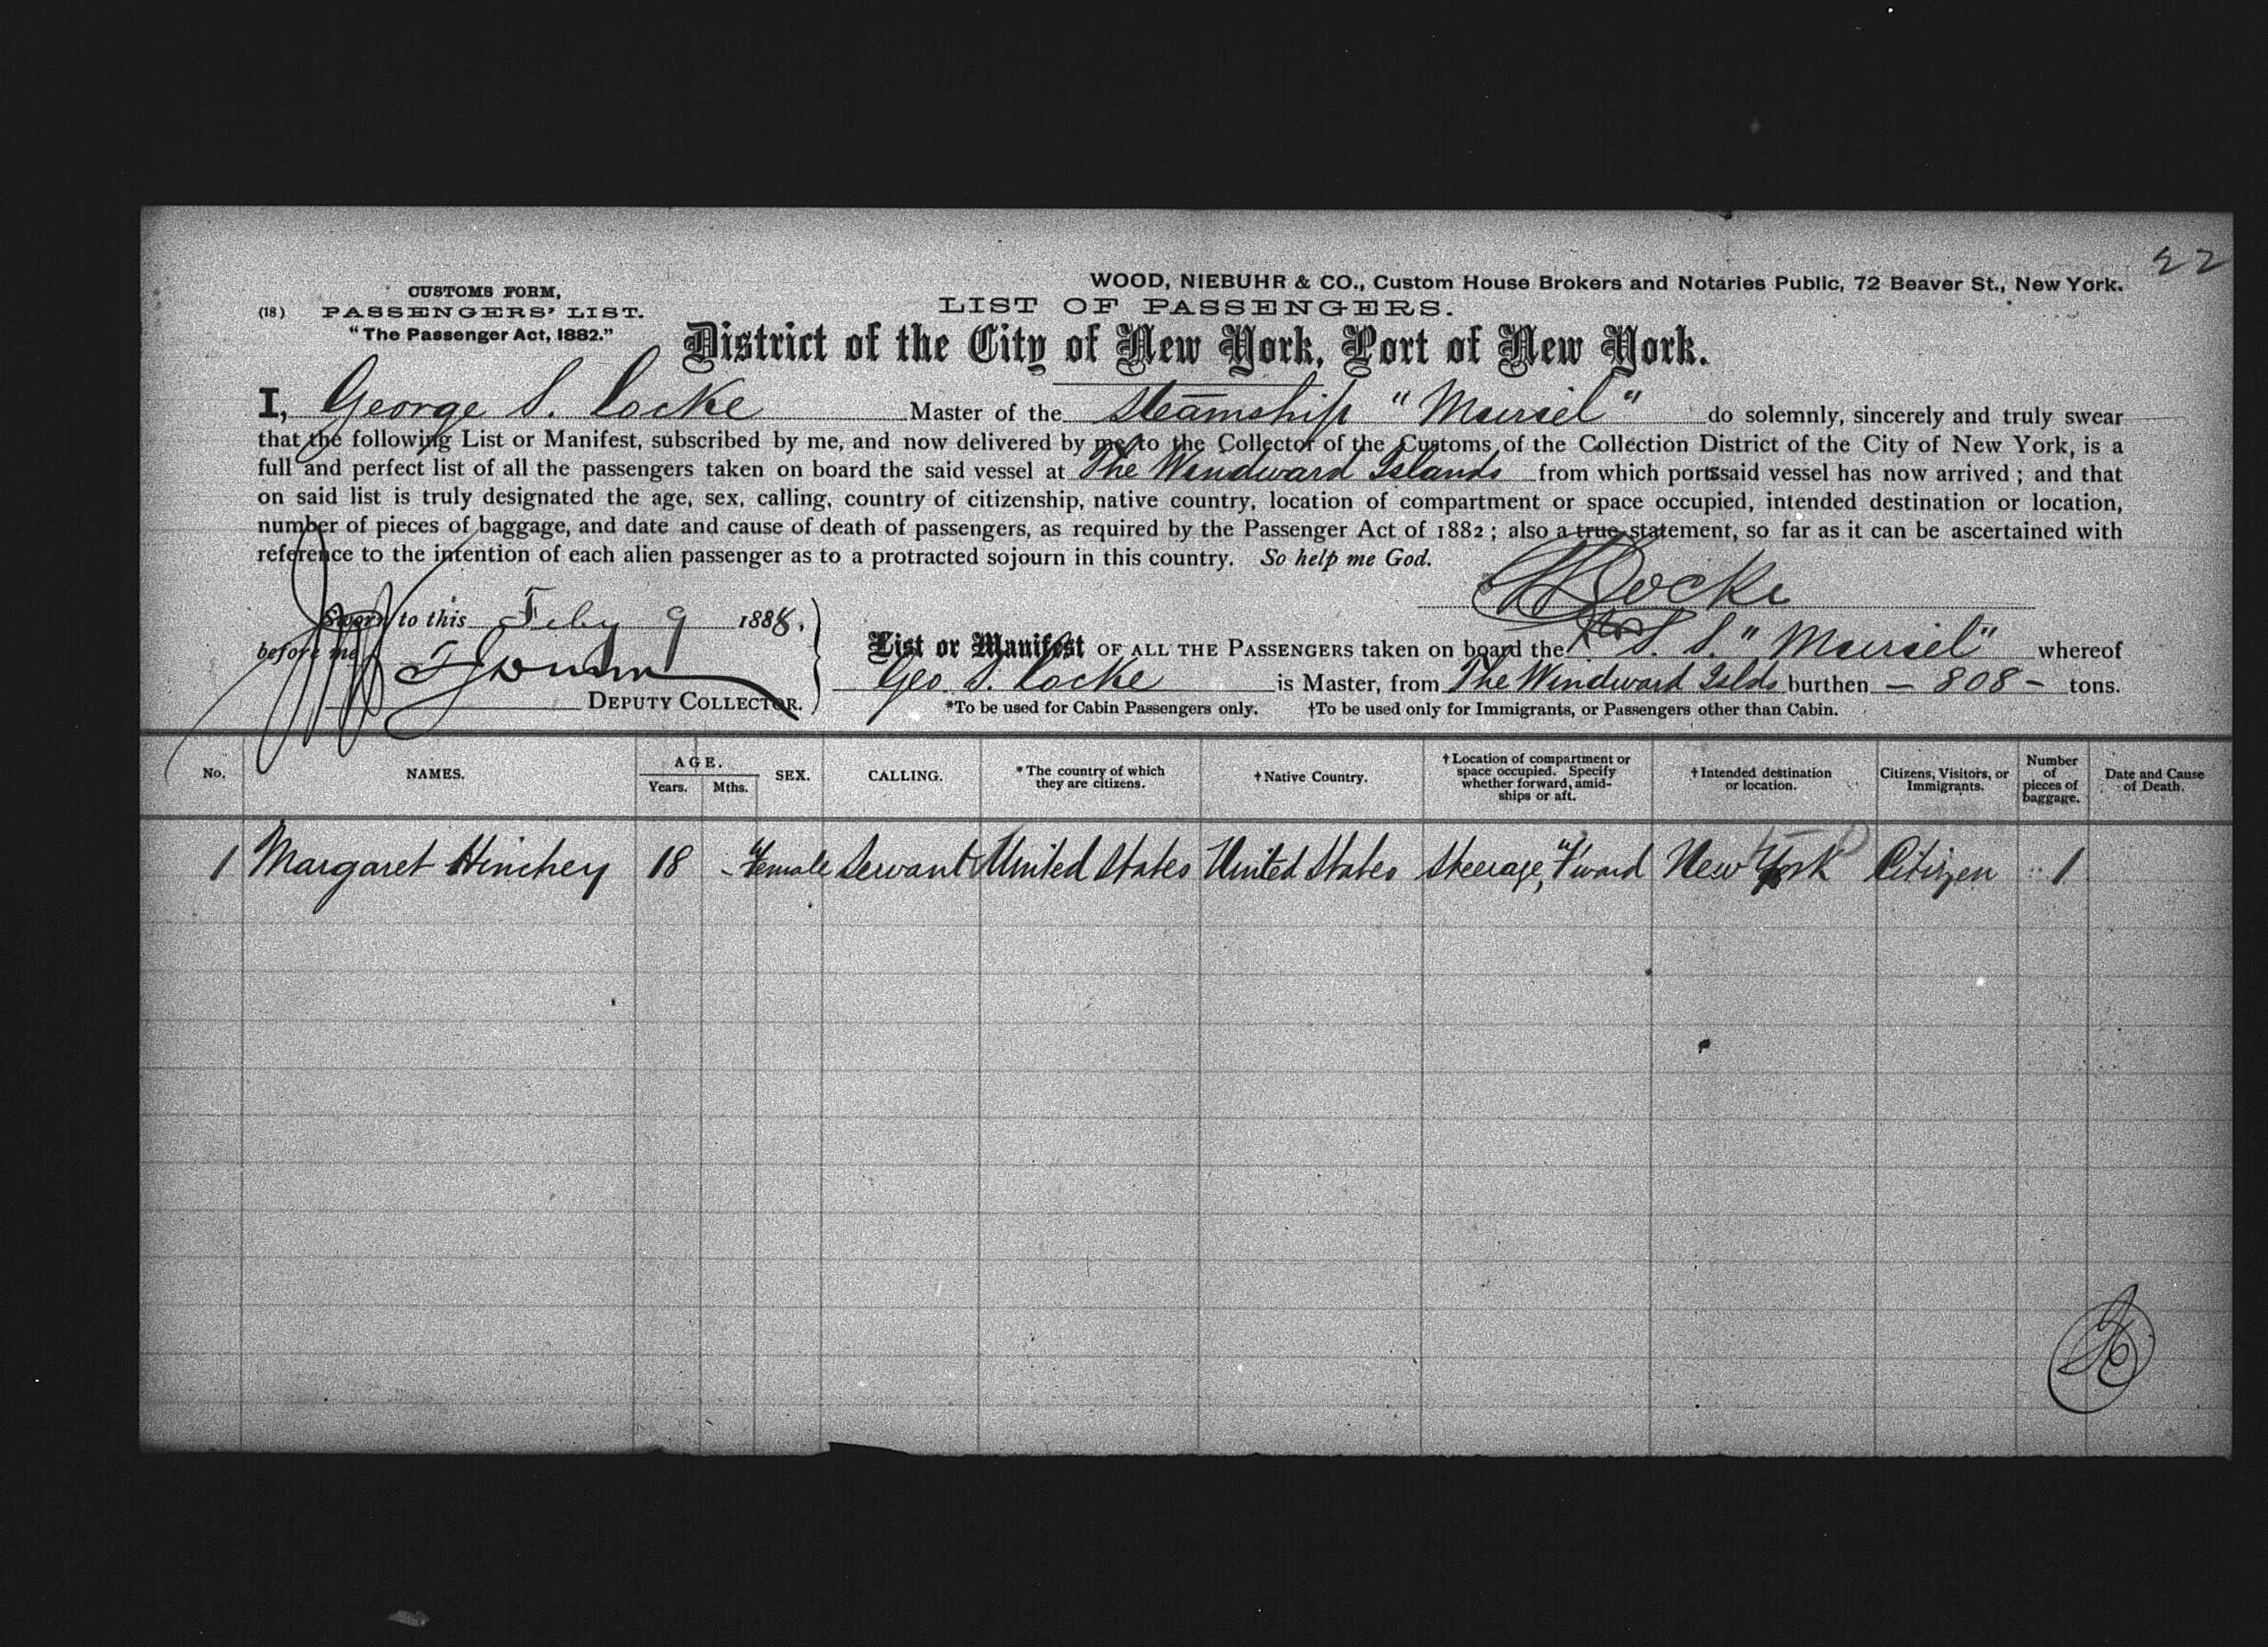 22
WOOD, NIEBUHR & CO., Custom House Brokers and Notaries Public, 72 Beaver St., New York.
CUSTOMS FORM,
(18) PASSENGERS' LIST.
"The Passenger Act, 1882."
LIST OF PASSENGERS.
District of the City of New York, Port of New York.
I, George S. Locke Master of the Steamship "Muriel" do solemnly, sincerely and truly swear
that the following List or Manifest, subscribed by me, and now delivered by me to the Collector of the Customs of the Collection District of the City of New York, is a
full and perfect list of all the passengers taken on board the said vessel at The Windward Islands from which ports said vessel has now arrived; and that
on said list is truly designated the age, sex, calling, country of citizenship, native country, location of compartment or space occupied, intended destination or location,
number of pieces of baggage, and date and cause of death of passengers, as required by the Passenger Act of 1882; also a true statement, so far as it can be ascertained with
reference to the intention of each alien passenger as to a protracted sojourn in this country. So help me God.
Locke
Sworn to this Feby 9 1888.
before me
DEPUTY COLLECTOR.
List or Manifest OF ALL THE PASSENGERS taken on board the S. S. "Muriel" whereof
Geo. S. Locke is Master, from The Windward Islds burthen — 808 — tons.
*To be used for Cabin Passengers only. †To be used only for Immigrants, or Passengers other than Cabin.
No. NAMES. AGE. Years. Mths. SEX. CALLING. *The country of which they are citizens. †Native Country. †Location of compartment or space occupied. Specify whether forward, amidships or aft. †Intended destination or location. Citizens, Visitors, or Immigrants. Number of pieces of baggage. Date and Cause of Death.
1 Margaret Hinchey 18 - Female Servant United States United States Steerage, F'ward New York Citizen 1